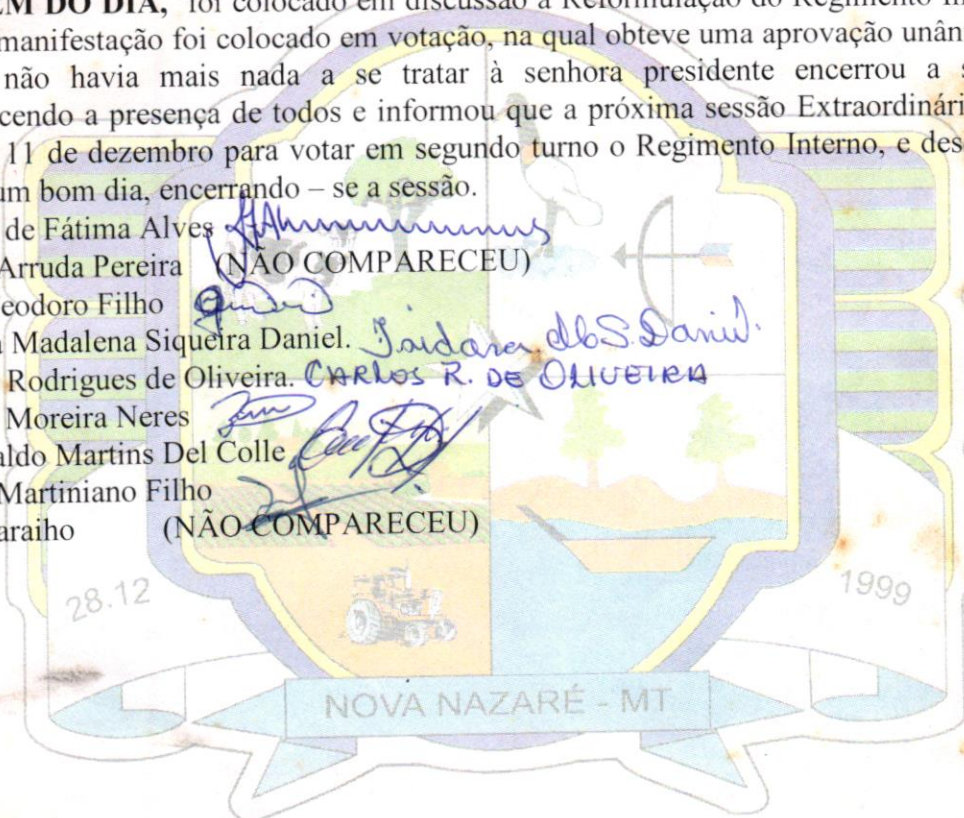 EM DO DIA, foi colocado em discussão a Reformulação do Regimento In
manifestação foi colocado em votação, na qual obteve uma aprovação unân
não havia mais nada a se tratar à senhora presidente encerrou a s
cendo a presença de todos e informou que a próxima sessão Extraordinári
11 de dezembro para votar em segundo turno o Regimento Interno, e des
um bom dia, encerrando – se a sessão.
de Fátima Alves
Arruda Pereira (NÃO COMPARECEU)
eodoro Filho
a Madalena Siqueira Daniel. S. Daniel.
Rodrigues de Oliveira. CARLOS R. DE OLIVEIRA
Moreira Neres
aldo Martins Del Colle
Martiniano Filho
araiho (NÃO COMPARECEU)
28.12 1999
NOVA NAZARÉ - MT